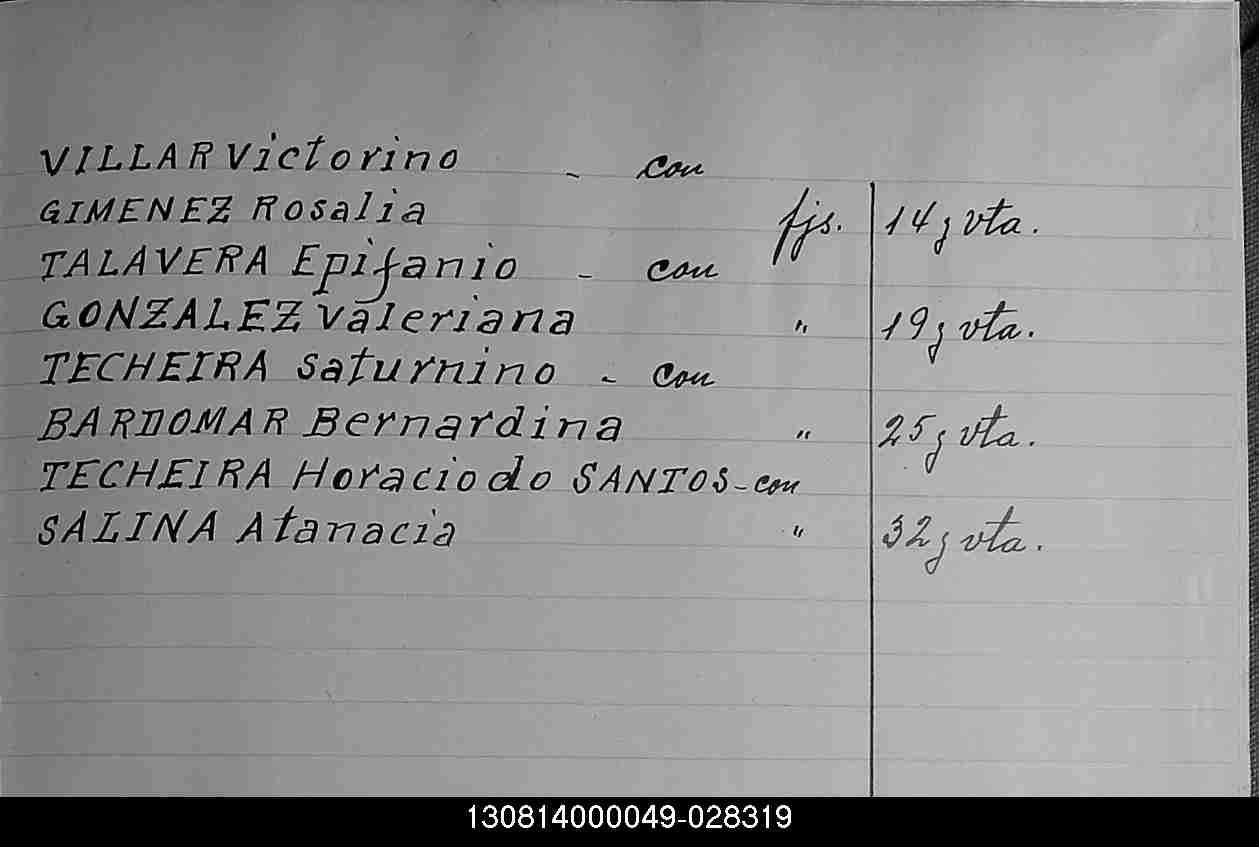 VILLAR Victorino - con
GIMENEZ Rosalia fjs. 14 y vta.
TALAVERA Epifanio - con
GONZALEZ Valeriana " 19 y vta.
TECHEIRA Saturnino - con
BARDOMAR Bernardina " 25 y vta.
TECHEIRA Horacio do SANTOS - con
SALINA Atanacia " 32 y vta.
130814000049-028319